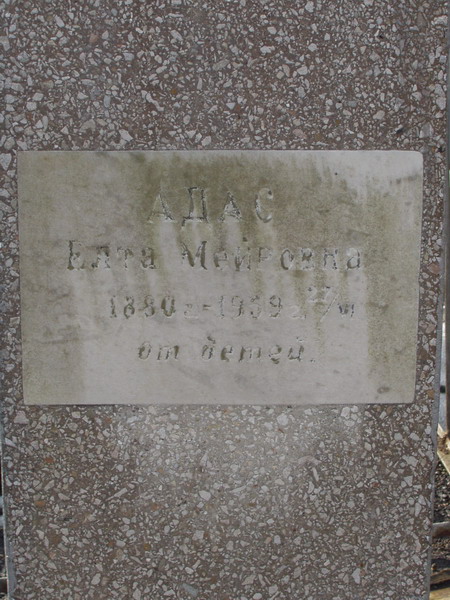 АДАС
Елта Мейровна
1880г.-1959г.
от детей.